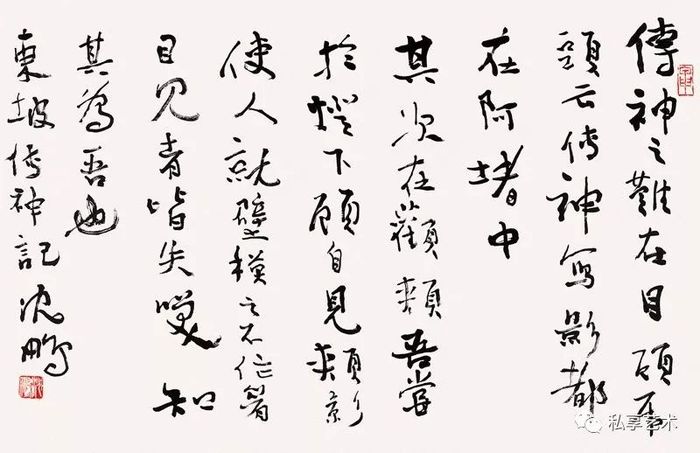 傳神之難在目顧虎
頭云傳神寫影都
在阿堵中
其次在顴頰吾嘗
於燈下顧自見頰影
使人就壁模之不作眉
目見者皆失笑知
其為吾也
東坡傳神記沈鵬
私享艺术